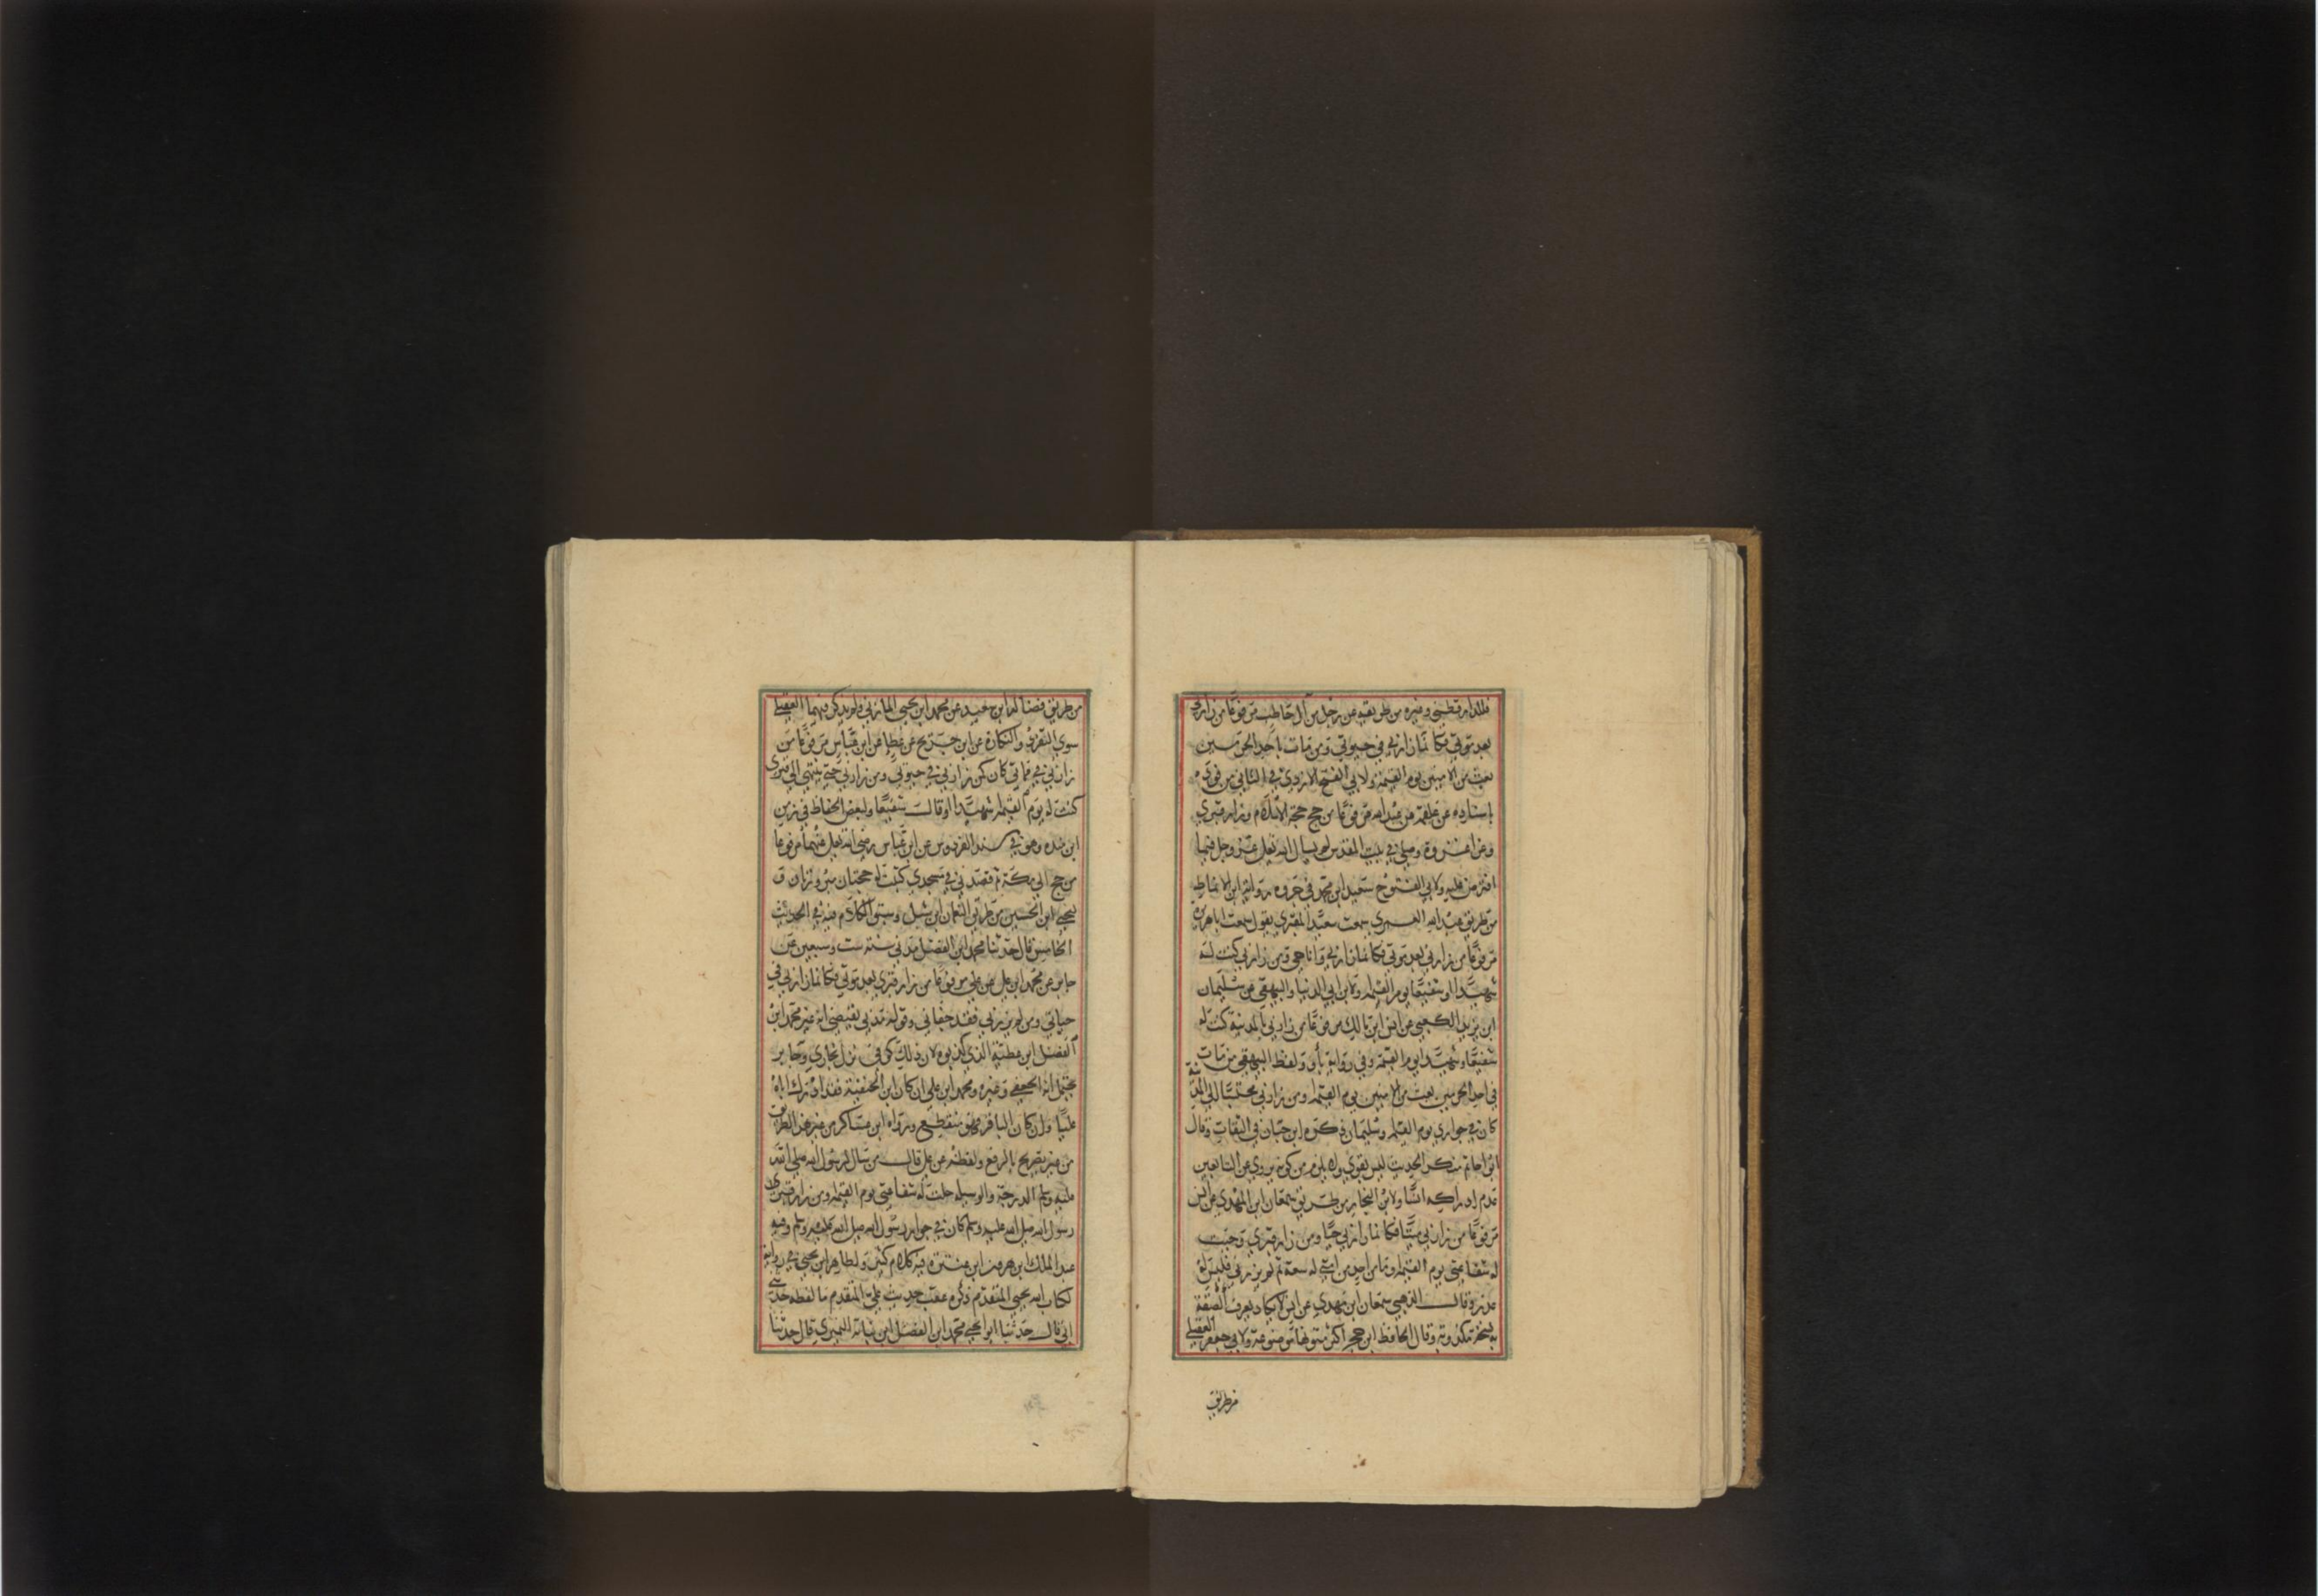 فللدارقطني وغيره من طريقه عن رجل من آل حاطب مرفوعا من زارني
بعد موتي فكانما زارني في حيوتي ومن مات باحد الحرمين
بعث من الامنين يوم القيمة ولابي الفتح الازدي في الثاني من فوايده
باسناده عن علقمة عن عبد الله مرفوعا من حج حجة الاسلام وزار قبري
وغزا غزوة وصلي في بيت المقدس لم يسال الله تعلي عز وجل فيما
افترض عليه ولابي الفتوح سعيد ابن محمد في جزوه رواية ابن الانماطي
من طريق عبد الله العمري سمعت سعيد المقبري يقول سمعت اباهريرة
مرفوعا من زارني بعد موتي فكانما زارني وانا حي ومن زارني كنت له
شهيدا او شفيعا يوم القيمة ولابن ابي الدنيا والبيهقي عن سليمان
ابن يزيد الكعبي عن انس ابن مالك مرفوعا من زارني بالمدينة كنت له
شفيعا وشهيدا يوم القيمة وفي رواية باو ولفظ البيهقي من مات
في احد الحرمين بعث من الامنين يوم القيمة ومن زارني محتسبا الي المدينة
كان في جواري يوم القيمة وسليمان ذكره ابن حبان في الثقات وقال
ابو احاتم منكر الحديث ليس بقوي ولا يلزم من كونه يروي عن التابعين
عدم ادراكه انسا ولابن النجار من طريق سمعان ابن المهدي عن انس
مرفوعا من زارني ميتا فكانما زارني حيا ومن زار قبري وجبت
له شفاعتي يوم القيمة وما من احد من امتي له سعة ثم لم يزرني فليس له
عذر وقال الذهبي سمعان ابن مهدي عن انس لا يكاد يعرف الصقت
به نسخة مكذوبة وقال الحافظ ابن حجر اكثر متونها موضوعة ولابي جعفر العقيلي
من طريق
من طريق فضالة ابن سعيد عن محمد ابن يحيي المازني ولم يذكر فيهما العقيلي
سوي التفرد والنكارة عن ابن جريج عن عطا عن ابن عباس مرفوعا من
زارني في مماتي كان كمن زارني في حيوتي ومن زارني حتي ينتهي الي قبري
كنت له يوم القيمة شهيدا او قال شفيعا ولبعض الحفاظ في زمن
ابن منده وهو في مسند الفردوس عن ابن عباس رضي الله تعلي عنهما مرفوعا
من حج الي مكة ثم قصدني في مسجدي كتبت له حجتان مبرورتان و
ليحيي ابن الحسين من طريق النعمان ابن شبل وسبق الكلام فيه في الحديث
الخامس قال حدثنا محمد ابن الفضل مدني سنة ست وسبعين عن
جابر عن محمد ابن علي عن علي مرفوعا من زار قبري بعد موتي فكانما زارني في
حياتي ومن لم يزرني فقد جفاني وقوله مدني يقتضي انه غير محمد ابن
الفضل ابن عطية الذي كذبوه لان ذلك كوفي نزل بخاري وجابر
يحتمل انه الجعفي وغيره ومحمد ابن علي ان كان ابن الحنفية فقد ادرك اباه
عليا وان كان الباقر فهو منقطع ورواه ابن عساكر من غير هذا الطريق
من غير تصريح بالرفع ولفظه عن علي قال من سال لرسول الله صلي الله
عليه وسلم الدرجة والوسيلة حلت له شفاعتي يوم القيمة ومن زار قبر
رسول الله صلي الله عليه وسلم كان في جوار رسول الله صلي الله عليه وسلم وفيه
عبد الملك ابن هرون ابن عنترة فيه كلام كثير ولطاهر ابن يحيي في روايته
لكتاب ابيه يحيي المتقدم ذكره عقب حديث علي المتقدم ما لفظه حدثني
ابي قال حدثنا ابو يحيي محمد ابن الفضل ابن نباتة النميري قال حدثنا